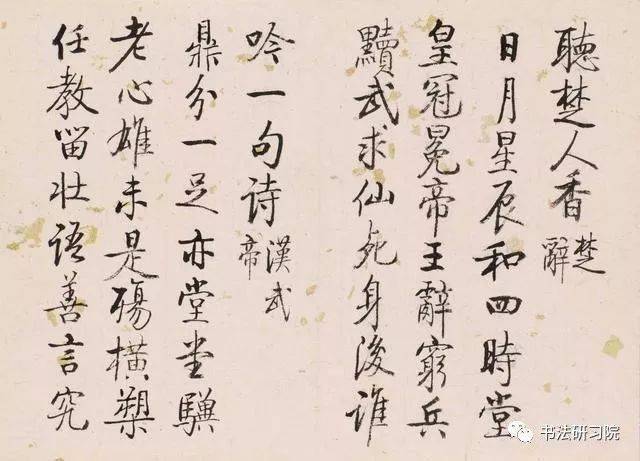 聽楚人香 楚辭
日月星辰和四時堂
皇冠冕帝王辭窮兵
黷武求仙死身後誰
吟一句诗 漢武帝
鼎分一足亦堂堂驥
老心雄未是殤橫槊
任教留壯語善言究
书法研习院